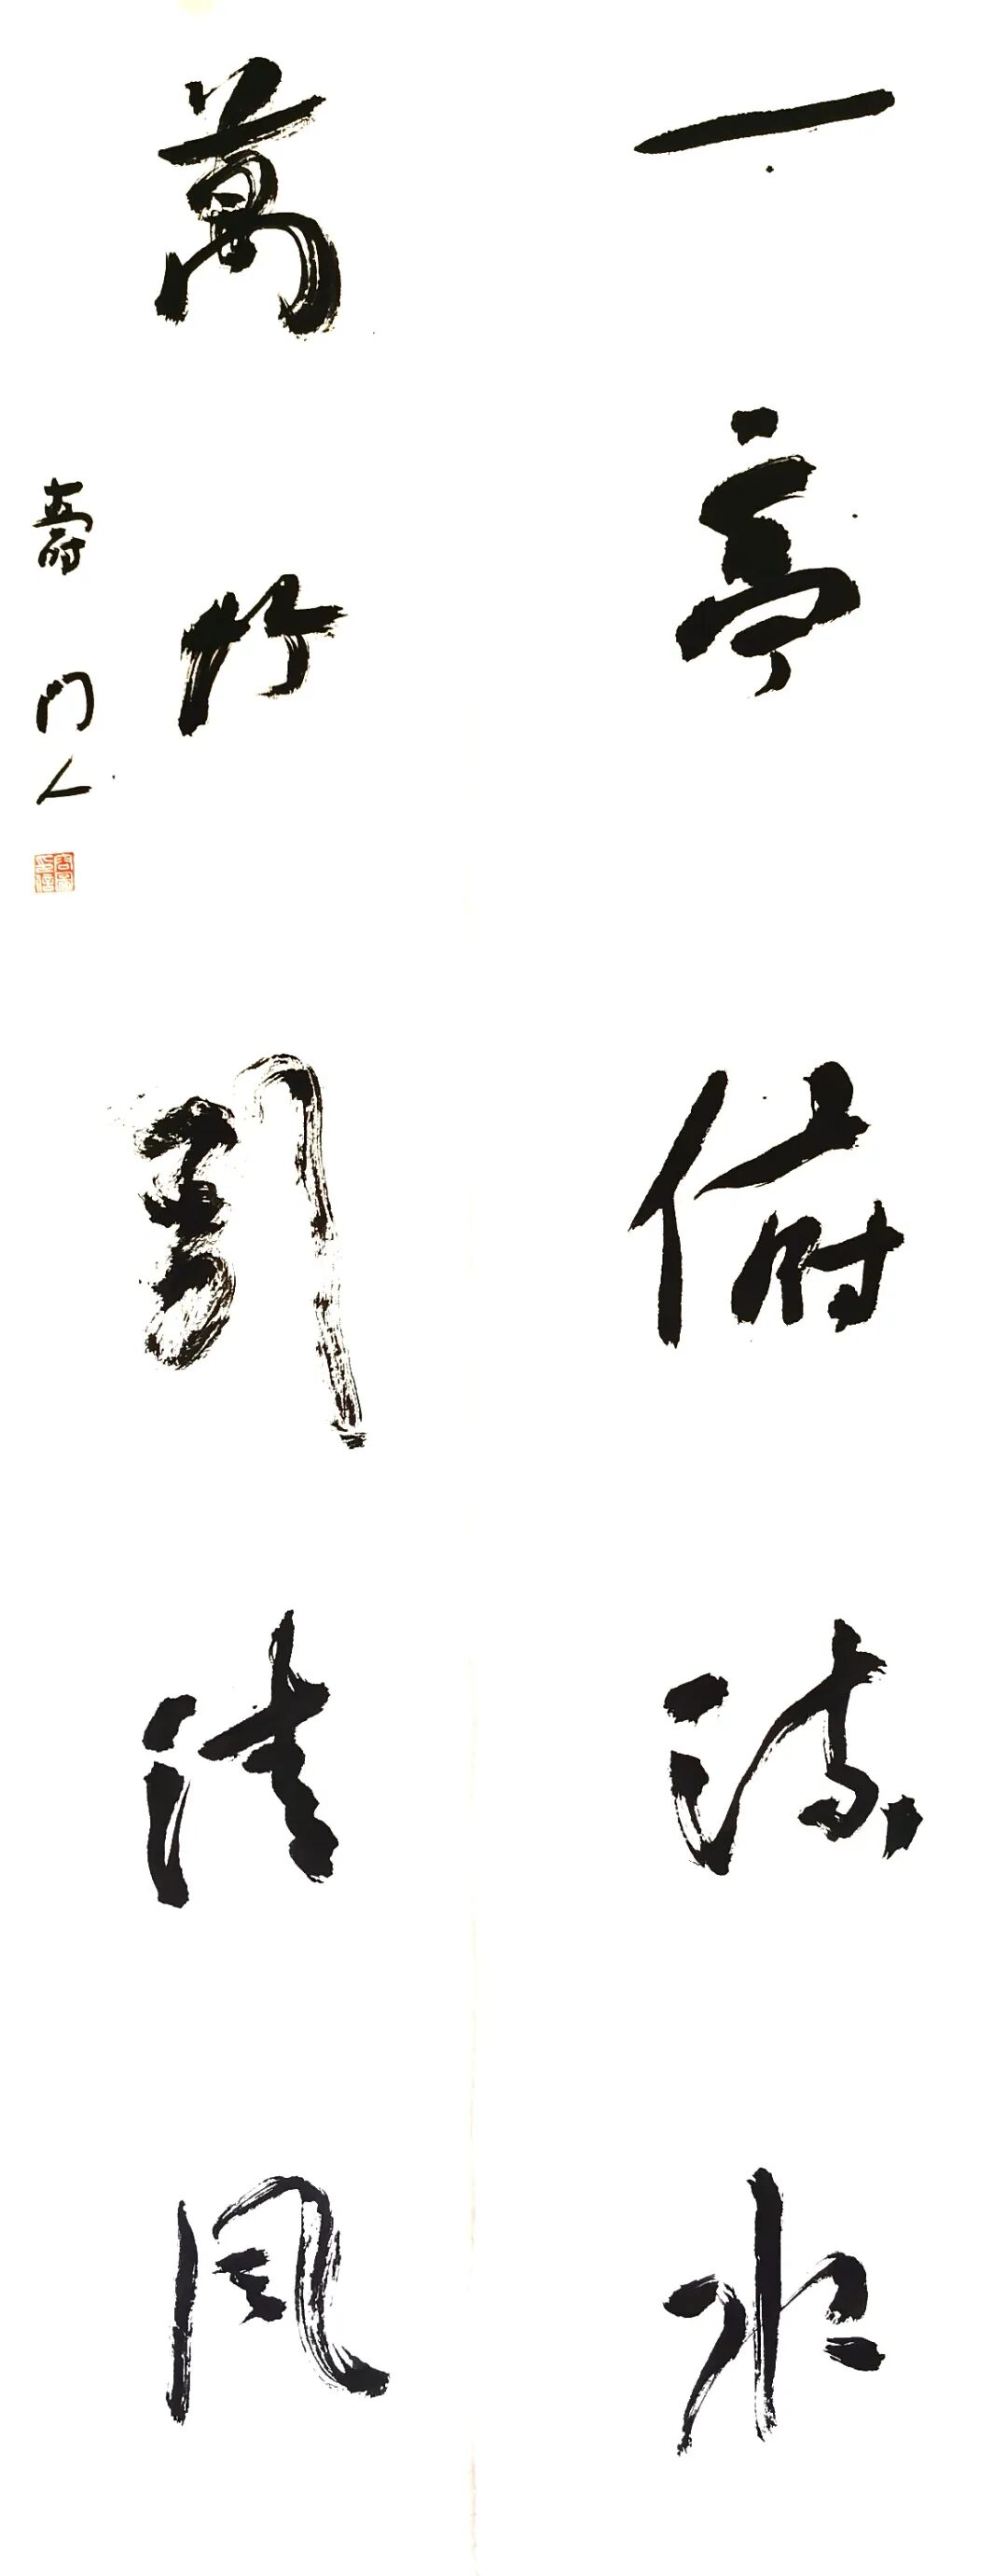 一亭俯流水
萬竹引清風
壽門人